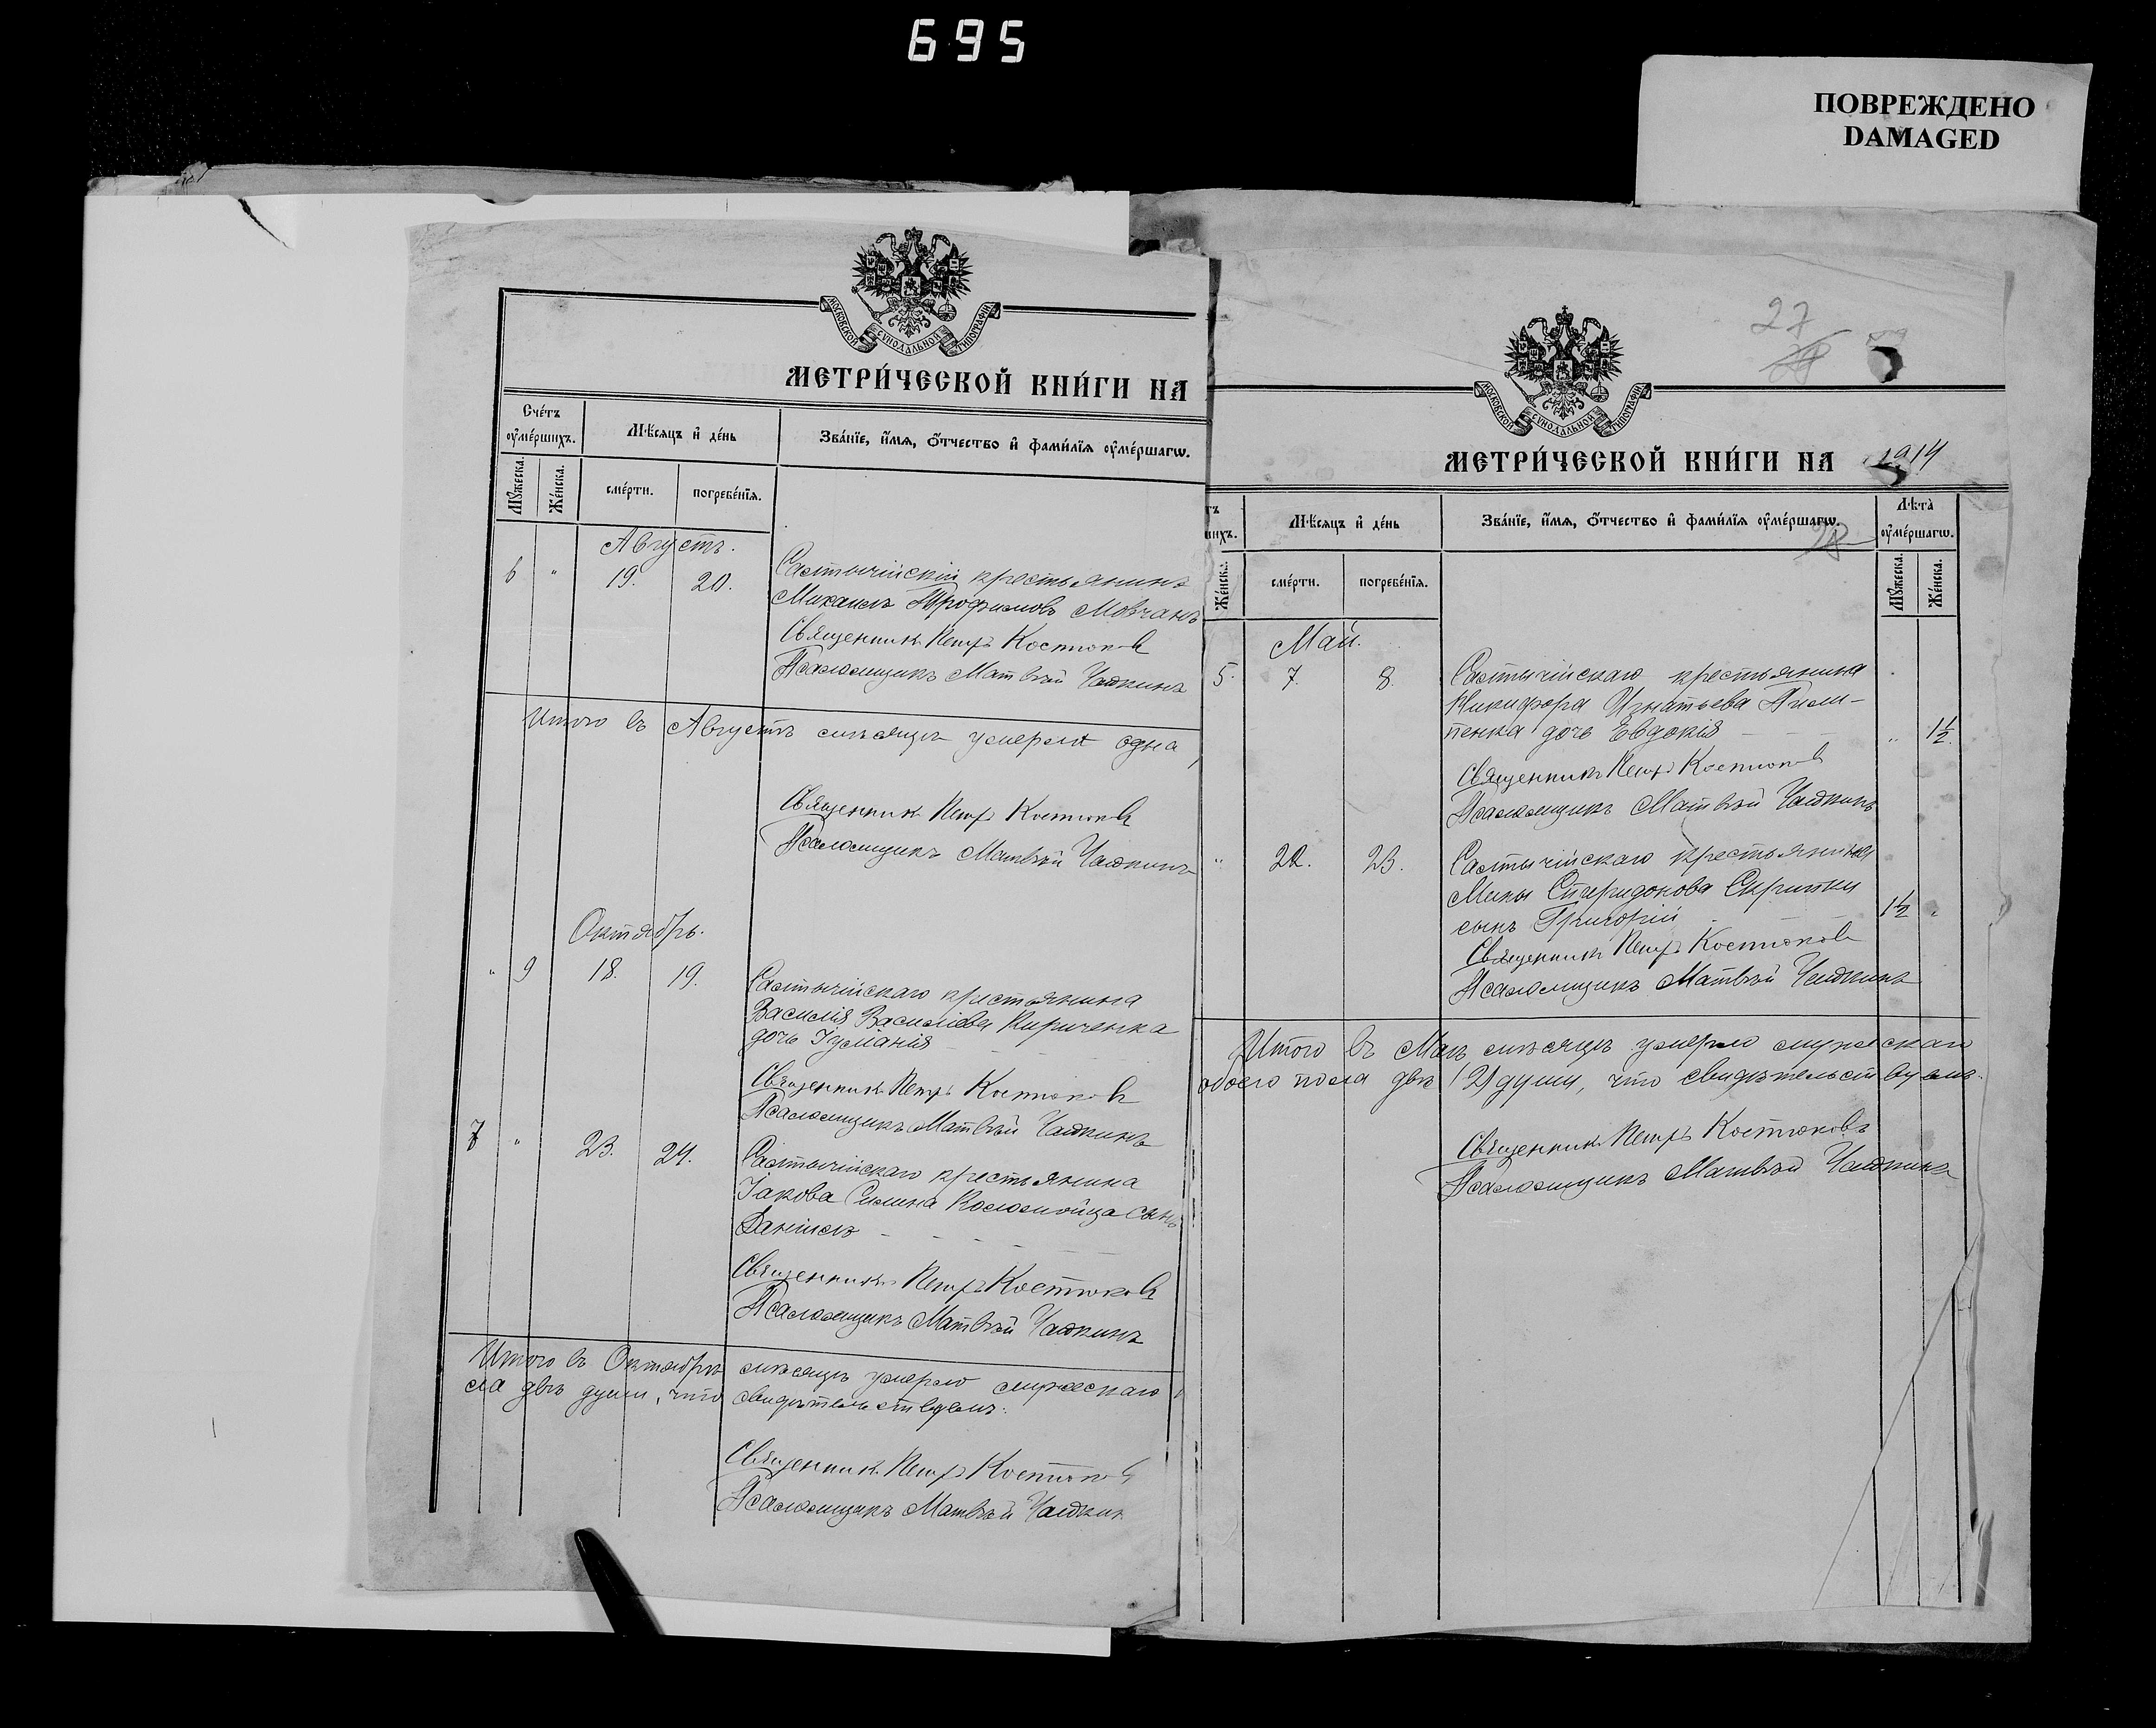 695
ПОВРЕЖДЕНО
DAMAGED
МОСКОВСКОЙ СУНОДАЛЬНОЙ ТИПОГРАФІИ
МЕТРИ́ЧЕСКОЙ КНИ́ГИ НА
Сче́тъ оумéршихъ.
Мѣ́сяцъ и҆ де́нь
Зва́нїе, и҆́мѧ, ѻ҆́тчество и҆ фами́лїѧ оумéршагѡ.
Мꙋ́жеска.
Же́нска.
сме́рти.
погребе́нїѧ.
Августъ.
6 " 19. 20.
крестьянинъ
Михаилъ Трофимовъ Мовчанъ
Священникъ Петръ Костюковъ
Псаломщикъ Матвѣй
Итого въ Августѣ мѣсяцѣ умерла одна
Священникъ Петръ Костюковъ
Псаломщикъ Матвѣй
Октябрь.
" 9 18. 19.
крестьянина
Василія Василіева Кириченка
дочь Іуліанія
Священникъ Петръ Костюковъ
Псаломщикъ Матвѣй
7 " 23. 24.
крестьянина
Іакова Коломойца сынъ
Даніилъ
Священникъ Петръ Костюковъ
Псаломщикъ Матвѣй
Итого въ Октябрѣ мѣсяцѣ умерло мужескаго
ла двѣ души, что свидѣтельствуемъ.
Священникъ Петръ Костюковъ
Псаломщикъ Матвѣй
27
МОСКОВСКОЙ СУНОДАЛЬНОЙ ТИПОГРАФІИ
МЕТРИ́ЧЕСКОЙ КНИ́ГИ НА 1914
тъ
шихъ.
Мѣ́сяцъ и҆ де́нь
Зва́нїе, и҆́мѧ, ѻ҆́тчество и҆ фами́лїѧ оумéршагѡ.
28
Лѣ́та оумéршагѡ.
Же́нска.
сме́рти.
погребе́нїѧ.
Мꙋ́жеска.
Же́нска.
Май.
5. 7. 8.
крестьянина
Никифора Игнатьева
пенка дочь Евдокія " 1½
Священникъ Петръ Костюковъ
Псаломщикъ Матвѣй
" 22. 23.
крестьянина
Мины Спиридонова Скрипки
сынъ Григорій 1½ "
Священникъ Петръ Костюковъ
Псаломщикъ Матвѣй
Итого въ Маѣ мѣсяцѣ умерло мужескаго
обоего пола двѣ (2) души, что свидѣтельствуемъ.
Священникъ Петръ Костюковъ
Псаломщикъ Матвѣй